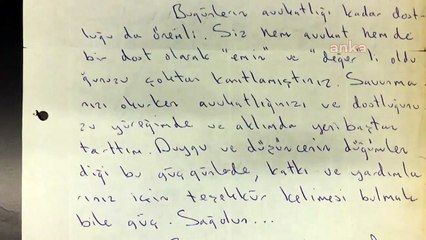 Bugünlerin avukatlığı kadar dost-
luğu da önemli. Siz hem avukat hem de
anka
bir dost olarak "emin" ve "değer"li oldu
ğunuzu çoktan kanıtlamıştınız. Savunma
nızı okurken avukatlığınızı ve dostluğunu
zu yüreğimde ve aklımda yeni baştan
tarttım. Duygu ve düşüncenin düğümlen
diği bu güç günlerde, katkı ve yardımla
rınız için teşekkür kelimesi bulmak
bile güç. Sağolun...